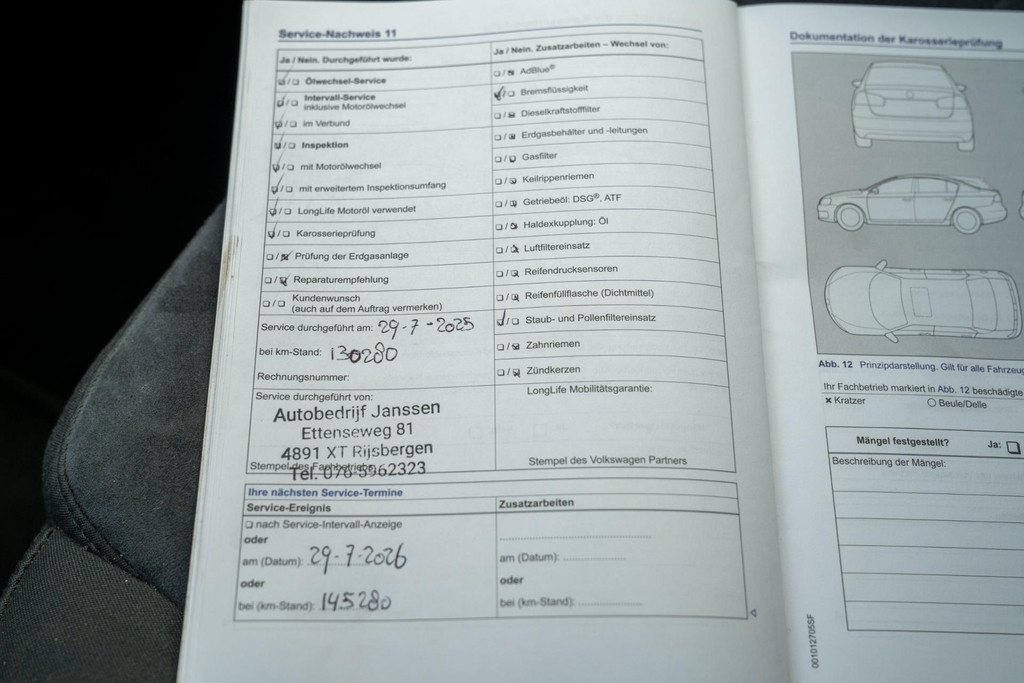 Service-Nachweis 11
Ja / Nein. Durchgeführt wurde:
☑ / ☐ Ölwechsel-Service
☑ / ☐ Intervall-Service
inklusive Motorölwechsel
☑ / ☐ im Verbund
☑ / ☐ Inspektion
☑ / ☐ mit Motorölwechsel
☑ / ☐ mit erweitertem Inspektionsumfang
☑ / ☐ LongLife Motoröl verwendet
☑ / ☐ Karosserieprüfung
☐ / ☑ Prüfung der Erdgasanlage
☐ / ☑ Reparaturempfehlung
☐ / ☐ Kundenwunsch
(auch auf dem Auftrag vermerken)
Service durchgeführt am: 29-7-2025
bei km-Stand: 130280
Rechnungsnummer:
Service durchgeführt von:
Autobedrijf Janssen
Ettenseweg 81
4891 XT Rijsbergen
Tel. 076-5962323
Stempel des Fachbetriebs:
Ja / Nein. Zusatzarbeiten – Wechsel von:
☐ / ☑ AdBlue®
☑ / ☐ Bremsflüssigkeit
☐ / ☑ Dieselkraftstofffilter
☐ / ☑ Erdgasbehälter und -leitungen
☐ / ☑ Gasfilter
☐ / ☑ Keilrippenriemen
☐ / ☑ Getriebeöl: DSG®, ATF
☐ / ☑ Haldexkupplung: Öl
☐ / ☑ Luftfiltereinsatz
☐ / ☑ Reifendrucksensoren
☐ / ☑ Reifenfüllflasche (Dichtmittel)
☑ / ☐ Staub- und Pollenfiltereinsatz
☐ / ☑ Zahnriemen
☐ / ☑ Zündkerzen
LongLife Mobilitätsgarantie:
Stempel des Volkswagen Partners
Ihre nächsten Service-Termine
Service-Ereignis
☐ nach Service-Intervall-Anzeige
oder
am (Datum): 29-7-2026
oder
bei (km-Stand): 145280
Zusatzarbeiten
am (Datum):
oder
bei (km-Stand):
Dokumentation der Karosserieprüfung
Abb. 12 Prinzipdarstellung. Gilt für alle Fahrzeug
Ihr Fachbetrieb markiert in Abb. 12 beschädigte
× Kratzer ○ Beule/Delle
Mängel festgestellt? Ja: ☐
Beschreibung der Mängel:
001012705SF